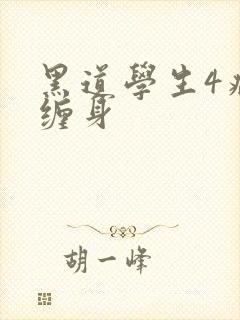 黑道學生4
缠身
胡一峰